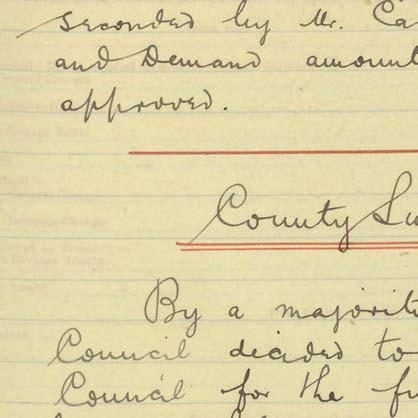 seconded by Mr. Ca
and Demand amount
approved.
County Su
By a majorit
Council decided to
Council for the f